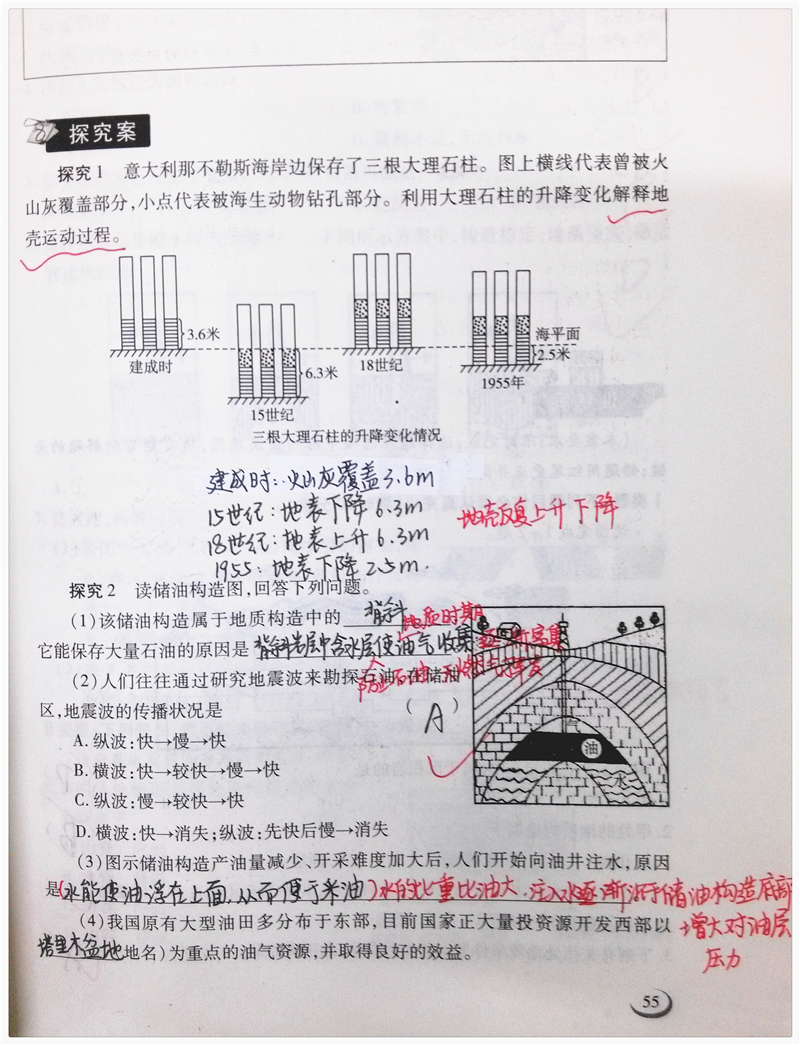 探究案
探究1 意大利那不勒斯海岸边保存了三根大理石柱。图上横线代表曾被火
山灰覆盖部分,小点代表被海生动物钻孔部分。利用大理石柱的升降变化解释地
壳运动过程。
3.6米
建成时
6.3米
15世纪
18世纪
海平面
2.5米
1955年
三根大理石柱的升降变化情况
建成时:火山灰覆盖3.6m
15世纪:地表下降6.3m
18世纪:地表上升6.3m
1955:地表下降2.5m.
地壳反复上升下降
探究2 读储油构造图,回答下列问题。
(1)该储油构造属于地质构造中的 背斜
地质时期
它能保存大量石油的原因是 背斜岩层中含水层使油气收集
逐渐密集
防止石油天然气
(2)人们往往通过研究地震波来勘探石油,在储油
区,地震波的传播状况是 ( A )
A. 纵波:快→慢→快
B. 横波:快→较快→慢→快
C. 纵波:慢→较快→快
D. 横波:快→消失;纵波:先快后慢→消失
气
油
水
(3)图示储油构造产油量减少、开采难度加大后,人们开始向油井注水,原因
是(水能使油浮在上面,从而便于采油)水的比重比油大.注入水逐渐沉于储油构造底部
增大对油层
压力
(4)我国原有大型油田多分布于东部,目前国家正大量投资源开发西部以
塔里木盆地(地名)为重点的油气资源,并取得良好的效益。
55